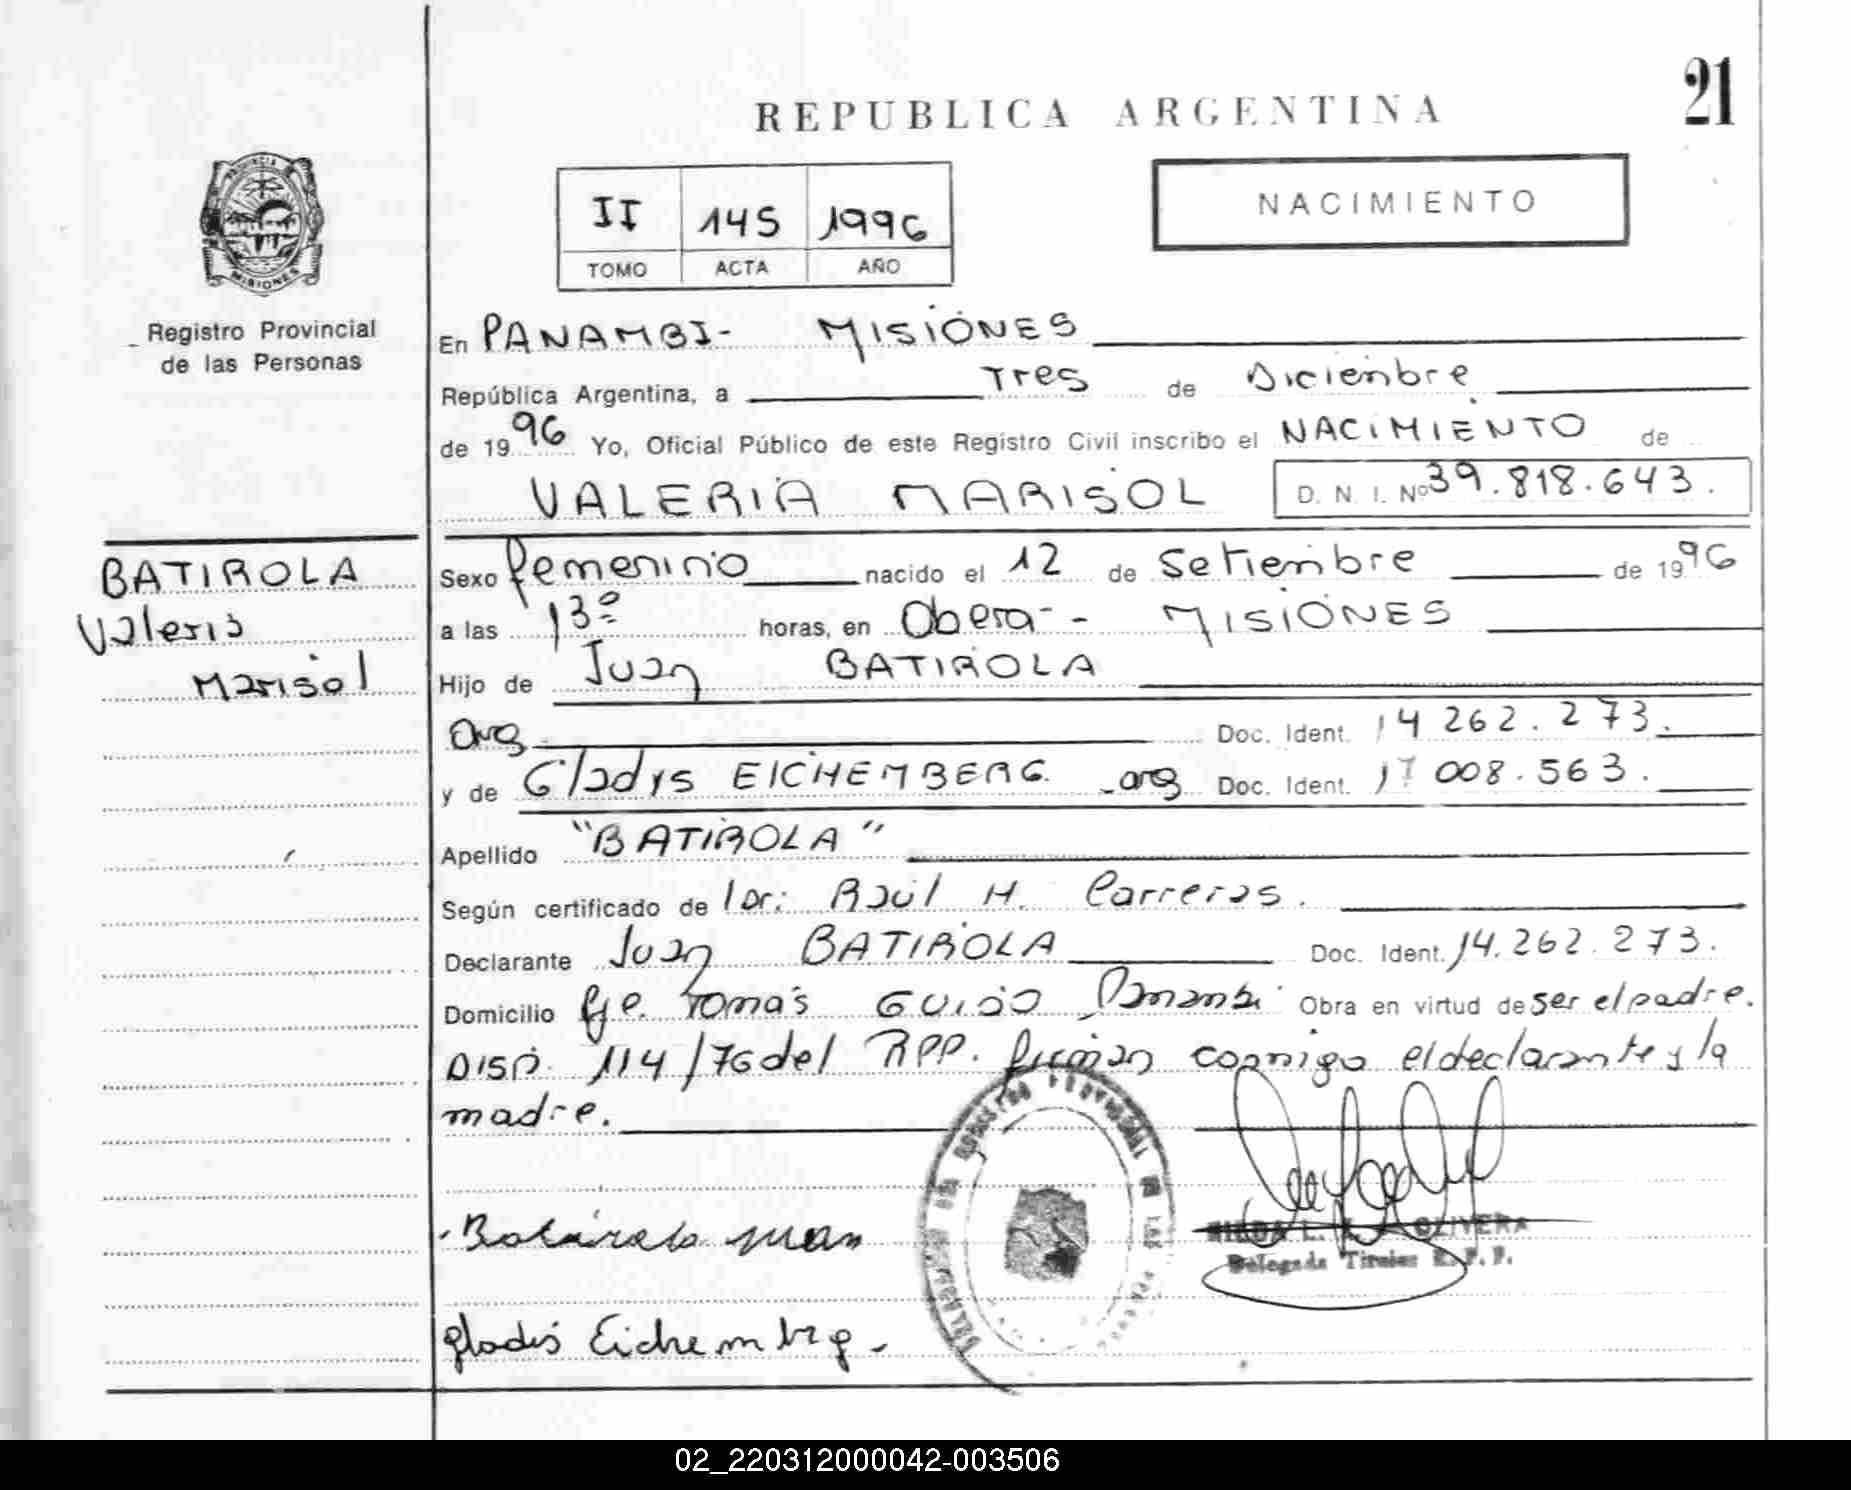 21
REPUBLICA ARGENTINA
II 145 1996
TOMO ACTA AÑO
NACIMIENTO
PROVINCIA
MISIONES
Registro Provincial
de las Personas
En PANAMBI- MISIONES
República Argentina, a Tres de Diciembre
de 1996 Yo, Oficial Público de este Registro Civil inscribo el NACIMIENTO de
VALERIA MARISOL D. N. I. Nº 39.818.643.
BATIROLA
Valeria
Marisol
Sexo femenino nacido el 12 de Setiembre de 1996
a las 13º horas, en Obera - MISIONES
Hijo de Juan BATIROLA
arg. Doc. Ident. 14 262.273.
y de Gladys EICHEMBERG. arg Doc. Ident. 17 008.563.
Apellido "BATIROLA"
Según certificado de Raúl H. Carreras.
Declarante Juan BATIROLA Doc. Ident. 14.262.273.
Domicilio Pje. Tomás GUIDO Panambi Obra en virtud de ser el padre.
DISP. 114/76 del RPP. firman conmigo el declarante y la
madre.
Batirola Juan
OLIVERA
Delegada Titular R.P.P.
gladis Eichemberg.
02_220312000042-003506